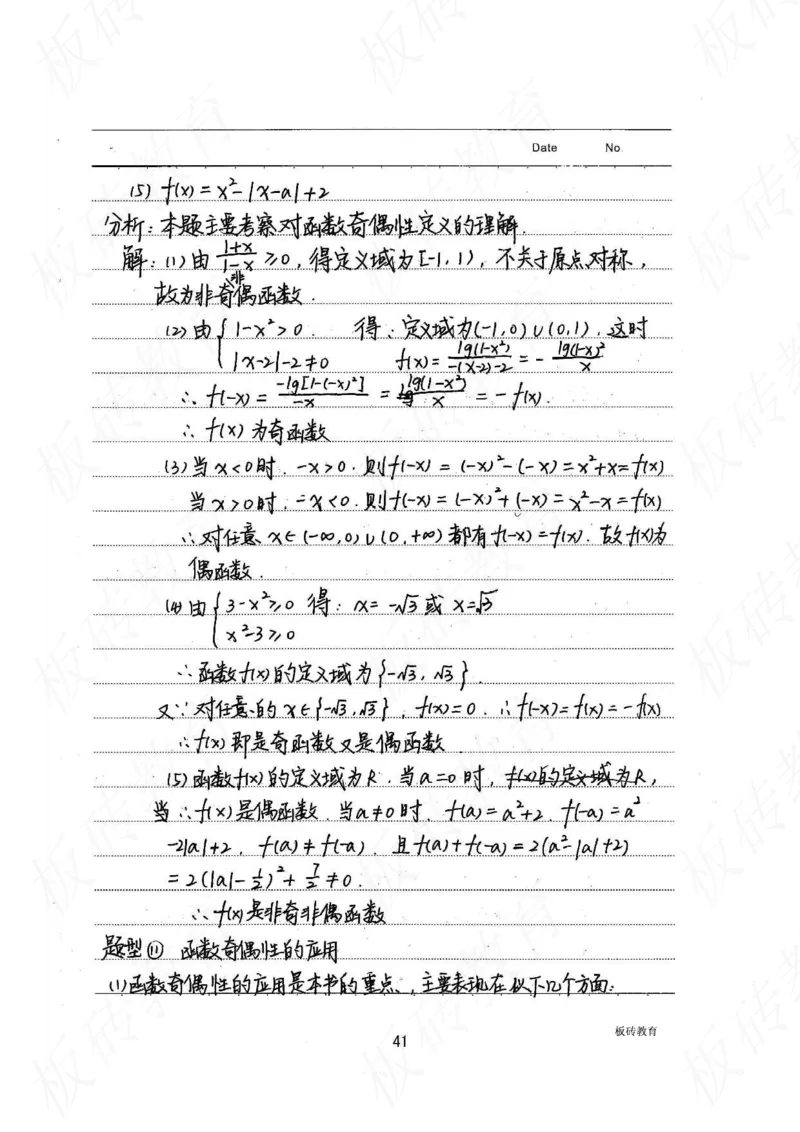 Date No
(5) f(x) = x²-|x-a|+2
分析：本题主要考察对函数奇偶性定义的理解.
解：(1) 由 (1+x)/(1-x) ≥0, 得定义域为[-1, 1), 不关于原点对称,
故为非奇非偶函数.
(2) 由{1-x²>0. 得：定义域为(-1,0)∪(0,1). 这时
|x-2|-2≠0 f(x)= lg(1-x²)/(-(x-2)-2) = - lg(1-x)²/x
∴ f(-x) = -lg[1-(-x)²]/(-x) = lg(1-x²)/x = -f(x).
∴ f(x) 为奇函数
(3) 当 x<0时. -x>0. 则f(-x) = (-x)²-(-x)=x²+x=f(x)
当 x>0时. -x<0. 则f(-x) = (-x)²+(-x)=x²-x=f(x)
∴对任意 x∈(-∞,0)∪(0,+∞) 都有f(-x)=f(x). 故 f(x)为
偶函数.
(4) 由{3-x²≥0 得：x= -√3 或 x=√3
x²-3≥0
∴函数f(x)的定义域为{-√3, √3}.
又∵对任意的 x∈{-√3, √3}, f(x)=0. ∴ f(-x)=f(x)=-f(x)
∴f(x) 即是奇函数又是偶函数
(5) 函数f(x)的定义域为R. 当a=0时, f(x)的定义域为R,
当 ∴f(x)是偶函数. 当a≠0时. f(a)=a²+2. f(-a)=a²
-2|a|+2. f(a)≠f(-a). 且f(a)+f(-a)=2(a²-|a|+2)
=2(|a|-1/2)²+7/2≠0.
∴f(x)是非奇非偶函数
题型⑪ 函数奇偶性的应用
(1)函数奇偶性的应用是本书的重点, 主要表现在以下几个方面:
板砖教育
41